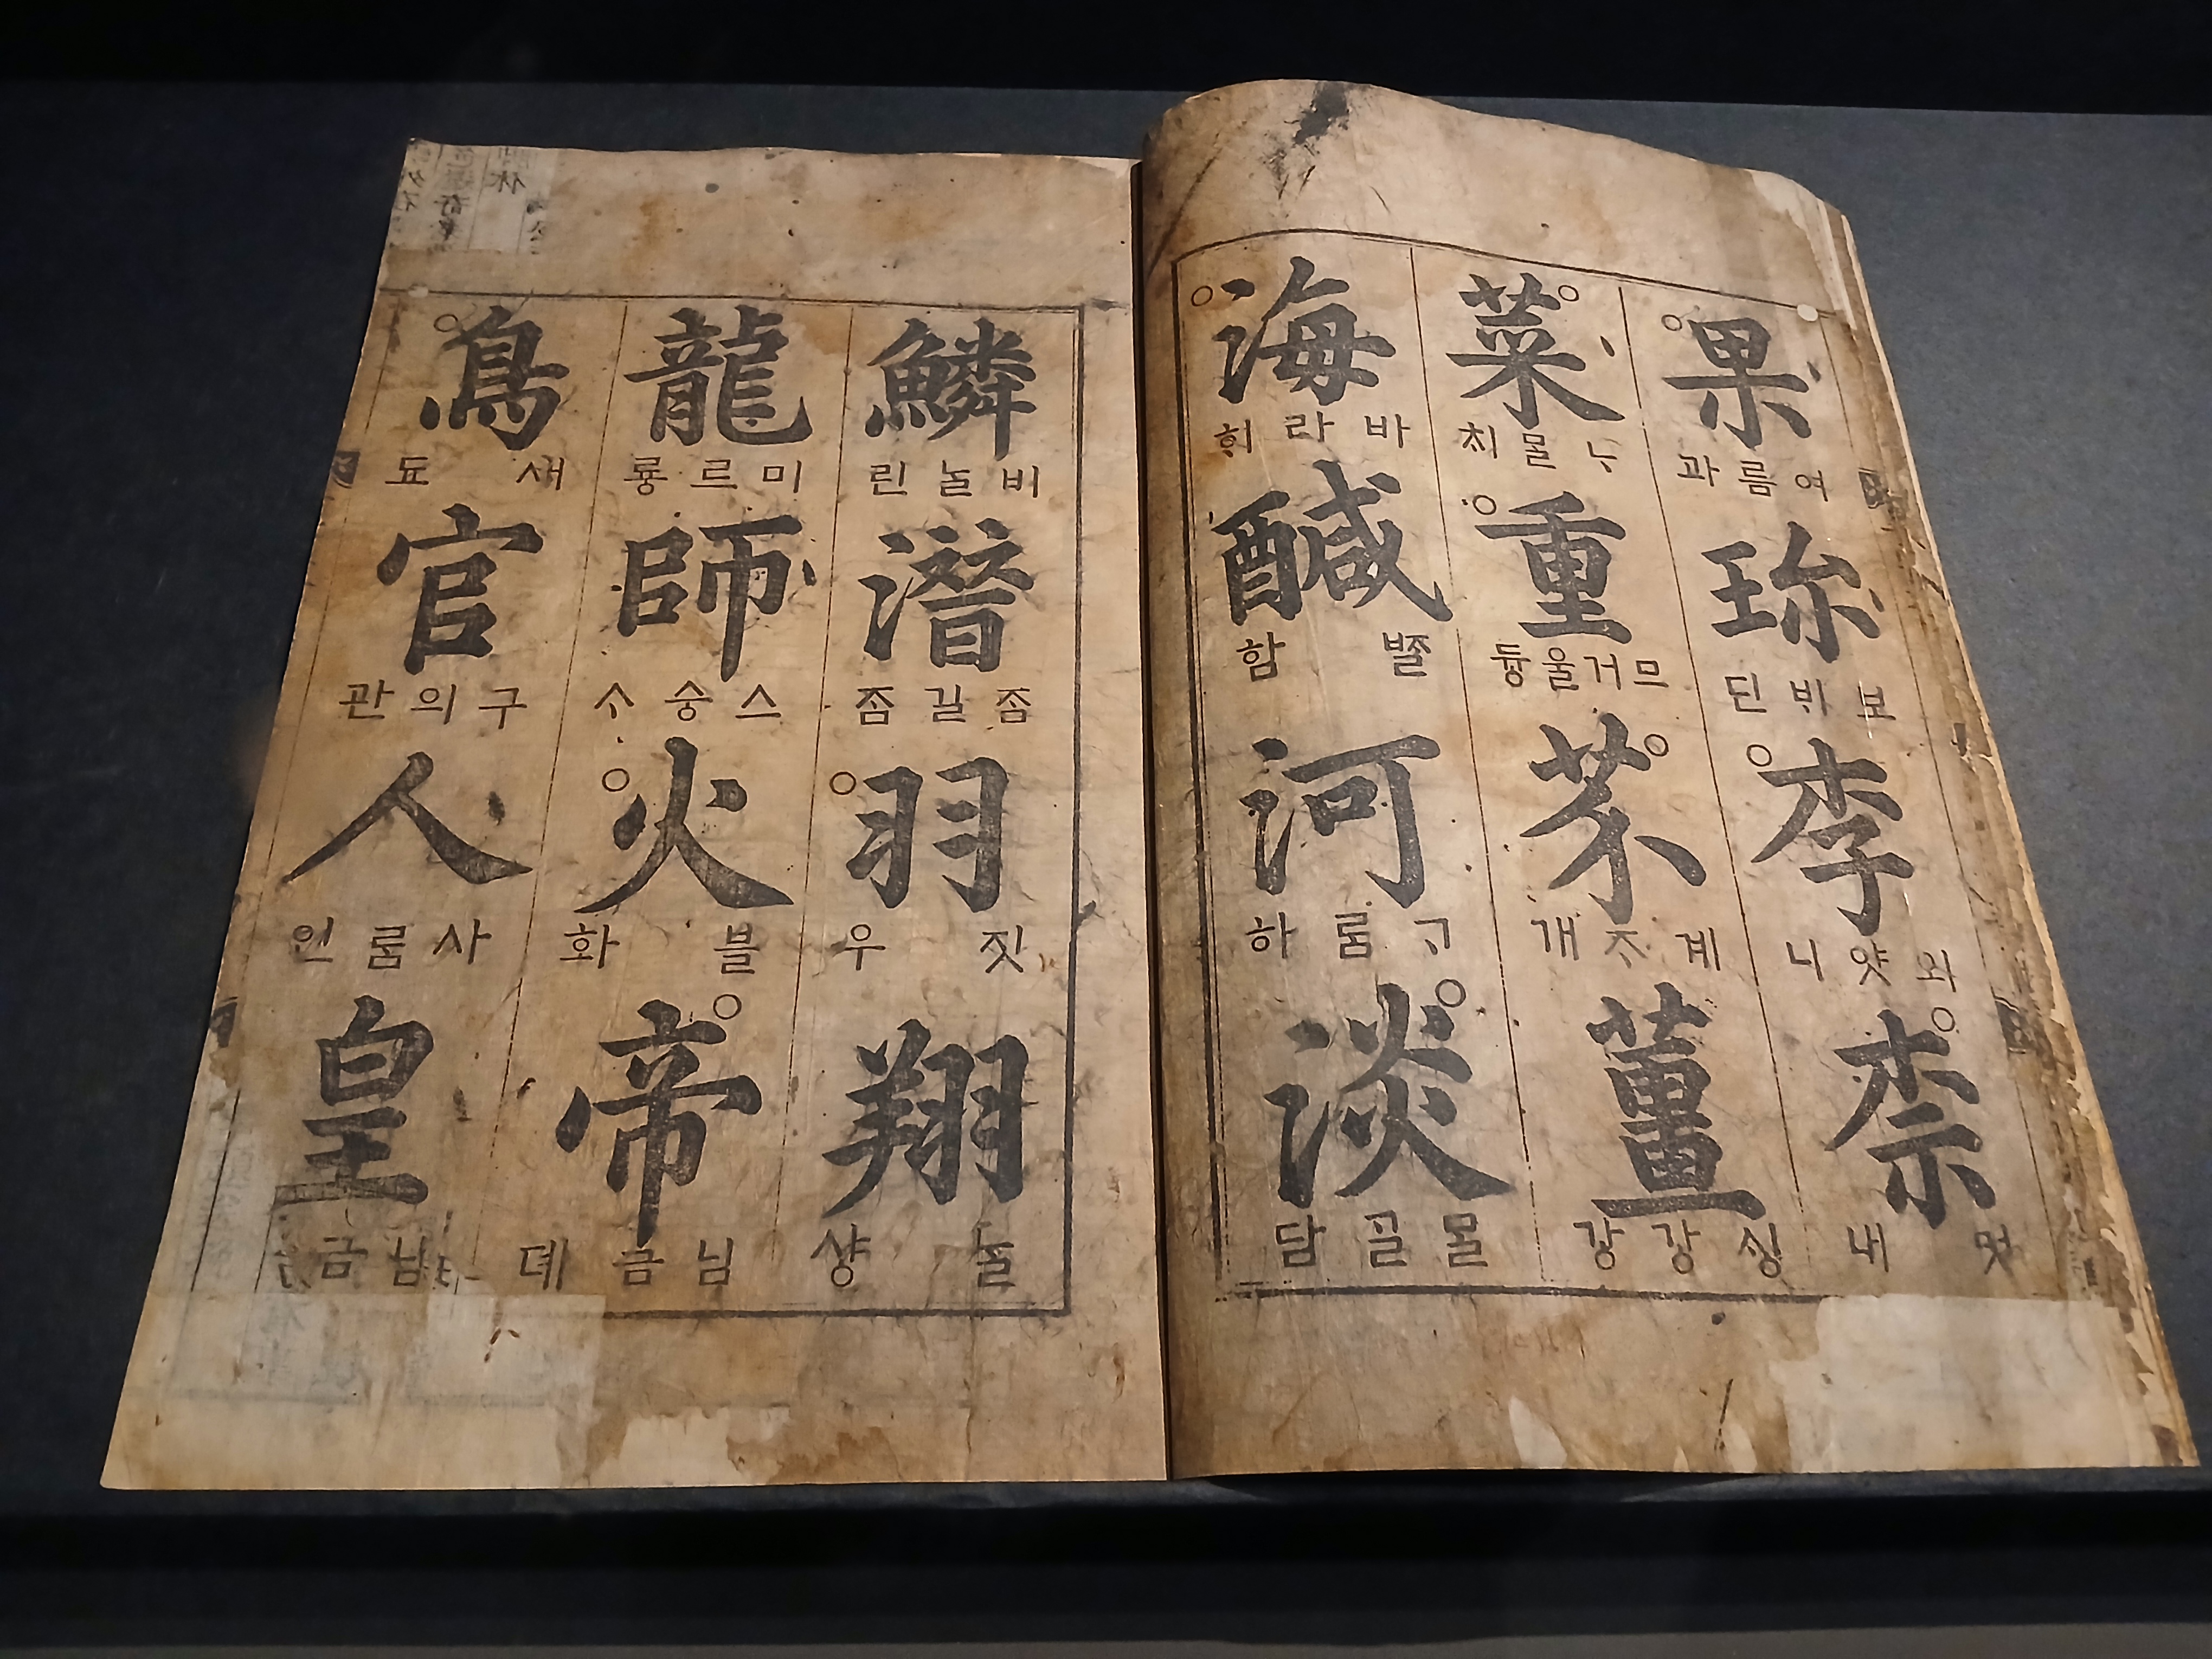 果
여름과
珎
보ᄇᆡ딘
李
외얏니
柰
멋내
菜
ᄂᆞᄆᆞᆯᄎᆡ
重
므거울듕
芥
계ᄌᆞ개
薑
ᄉᆡᆼ강강
海
바라ᄒᆡ
醎
ᄧᆞᆯ함
河
ᄀᆞᄅᆞᆷ하
淡
ᄆᆞᆯᄀᆞᆯ담
鱗
비늘린
潛
ᄌᆞᆷ길ᄌᆞᆷ
羽
짓우
翔
ᄂᆞᆯ샹
龍
미르룡
師
스승ᄉᆞ
火
블화
帝
님금뎨
鳥
새됴
官
구의관
人
사ᄅᆞᆷ인
皇
님금